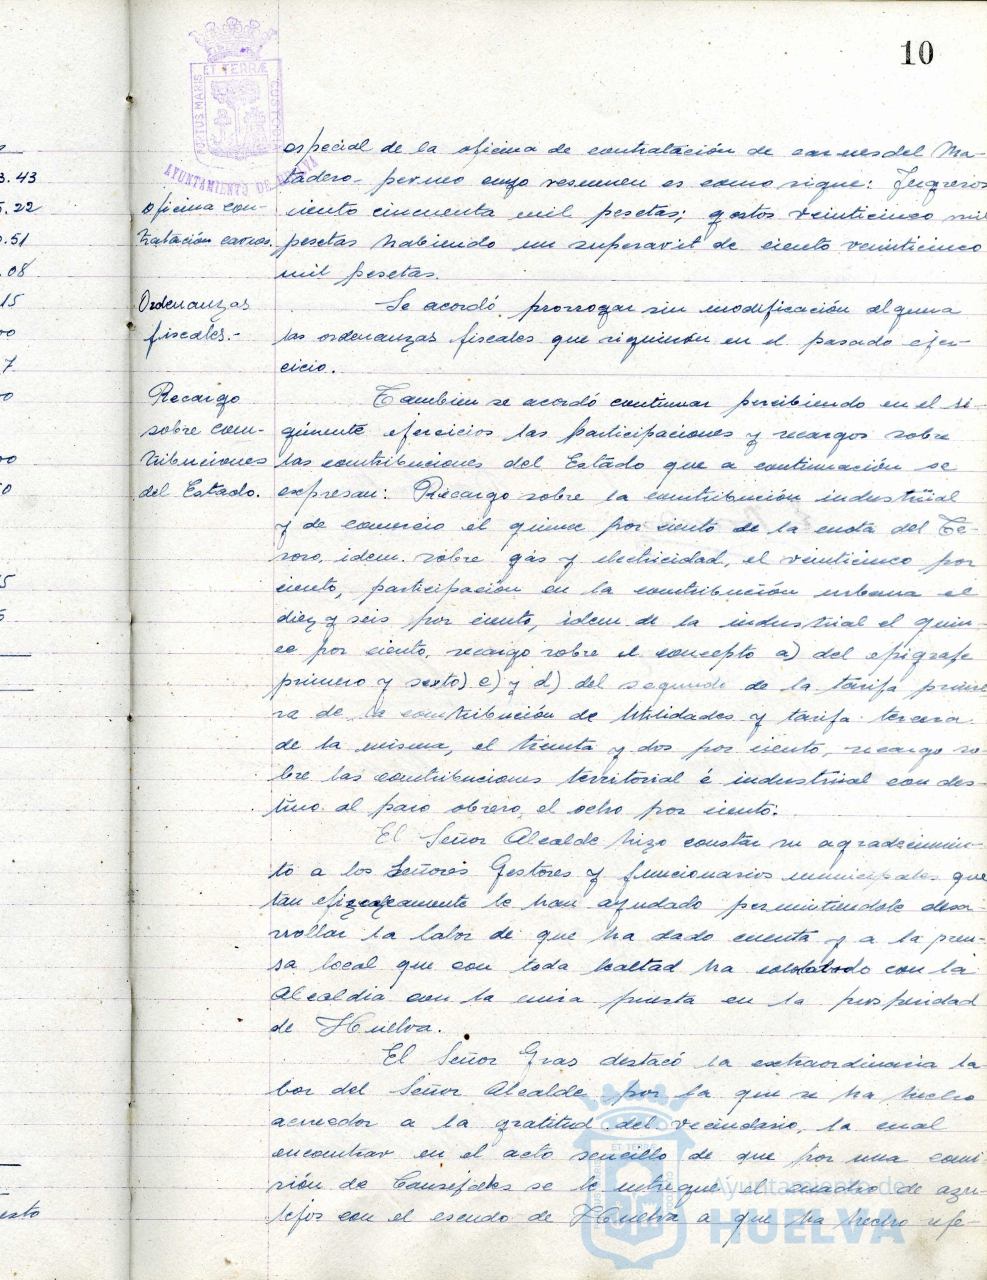 10
PORTUS MARIS ET TERRÆ CUSTODIA
AYUNTAMIENTO DE HUELVA
3.43
5.22
.51
.08
15
00
7.
00
00
0
5
5
esto
Oficina con-
tratación carnes.
Ordenanzas
fiscales.-
Recargo
sobre con-
tribuciones
del Estado.
especial de la oficina de contratación de carnes del Ma-
tadero- permo cuyo resumen es como sigue: Ingresos
ciento cincuenta mil pesetas; gastos veinticinco mil
pesetas habiendo un superavit de ciento veinticinco
mil pesetas.
Se acordó prorrogar sin modificación alguna
las ordenanzas fiscales que siguieron en el pasado ejer-
cicio.
Tambien se acordó continuar percibiendo en el si-
guiente ejercicios las participaciones y recargos sobre
las contribuciones del Estado que a continuación se
expresan: Recargo sobre la contribución industrial
y de comercio el quince por ciento de la cuota del Te-
soro, idem. sobre gas y electricidad, el veinticinco por
ciento, participación en la contribución urbana el
diez y seis por ciento, idem de la industrial el quin-
ce por ciento, recargo sobre el concepto a) del epigrafe
primero y sexto) c) y d) del segundo de la tarifa prime
ra de la contribución de Utilidades y tarifa tercera
de la misma, el treinta y dos por ciento, recargo so-
bre las contribuciones territorial é industrial con des-
tino al paro obrero, el ocho por ciento.
El Señor Alcalde hizo constar su agradecimien-
to a los Señores Gestores y funcionarios municipales que
tan eficazcamente le han ayudado permitiendole desa-
rrollar la labor de que ha dado cuenta y a la pren-
sa local que con toda lealtad ha colaborado con la
Alcaldia con la mira puesta en la prosperidad
de Huelva.
El Señor Gras destacó la extraordinaria la-
bor del Señor Alcalde por la que se ha hecho
acreedor a la gratitud del vecindario, la cual
encontrar en el acto sencillo de que por una comi-
sión de Concejales se le entregue el cuadro de azu-
lejos con el escudo de Huelva a que ha hecho refe-
Ayuntamiento de
HUELVA